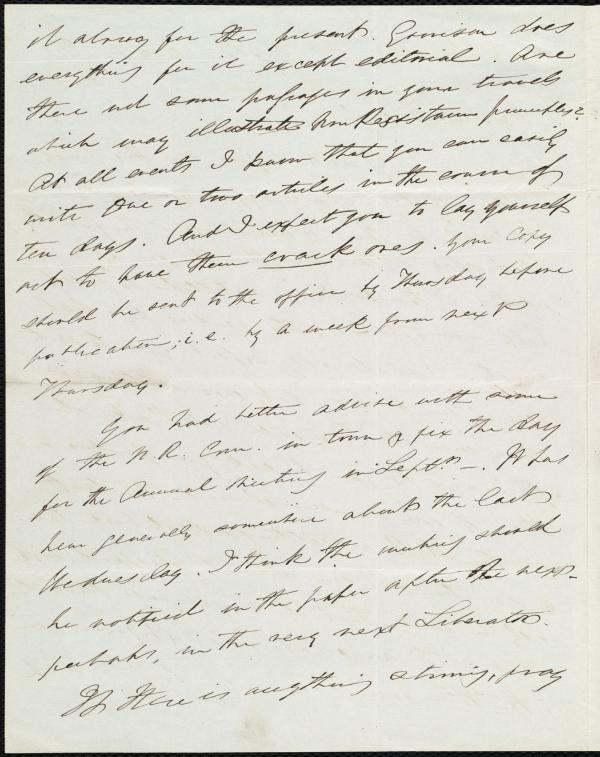 it along for the present. Garrison does
everything for it except editorial. Are
there not some passages in your travels
which may illustrate Non Resistance principles?
At all events I know that you can easily
write one or two articles in the course of
ten days. And I expect you to lay yourself
out to have them crack ones. Your copy
should be sent to the office by Thursday before
publication, i.e. by a week from next
Thursday.
You had better advise with some
of the N.R. Com. in town & fix the day
for the Annual Meeting in Sept.r —. It has
been generally somewhere about the last
Wednesday. I think the meeting should
be notified in the paper after the next—
perhaps, in the very next Liberator.
If there is anything stirring, pray